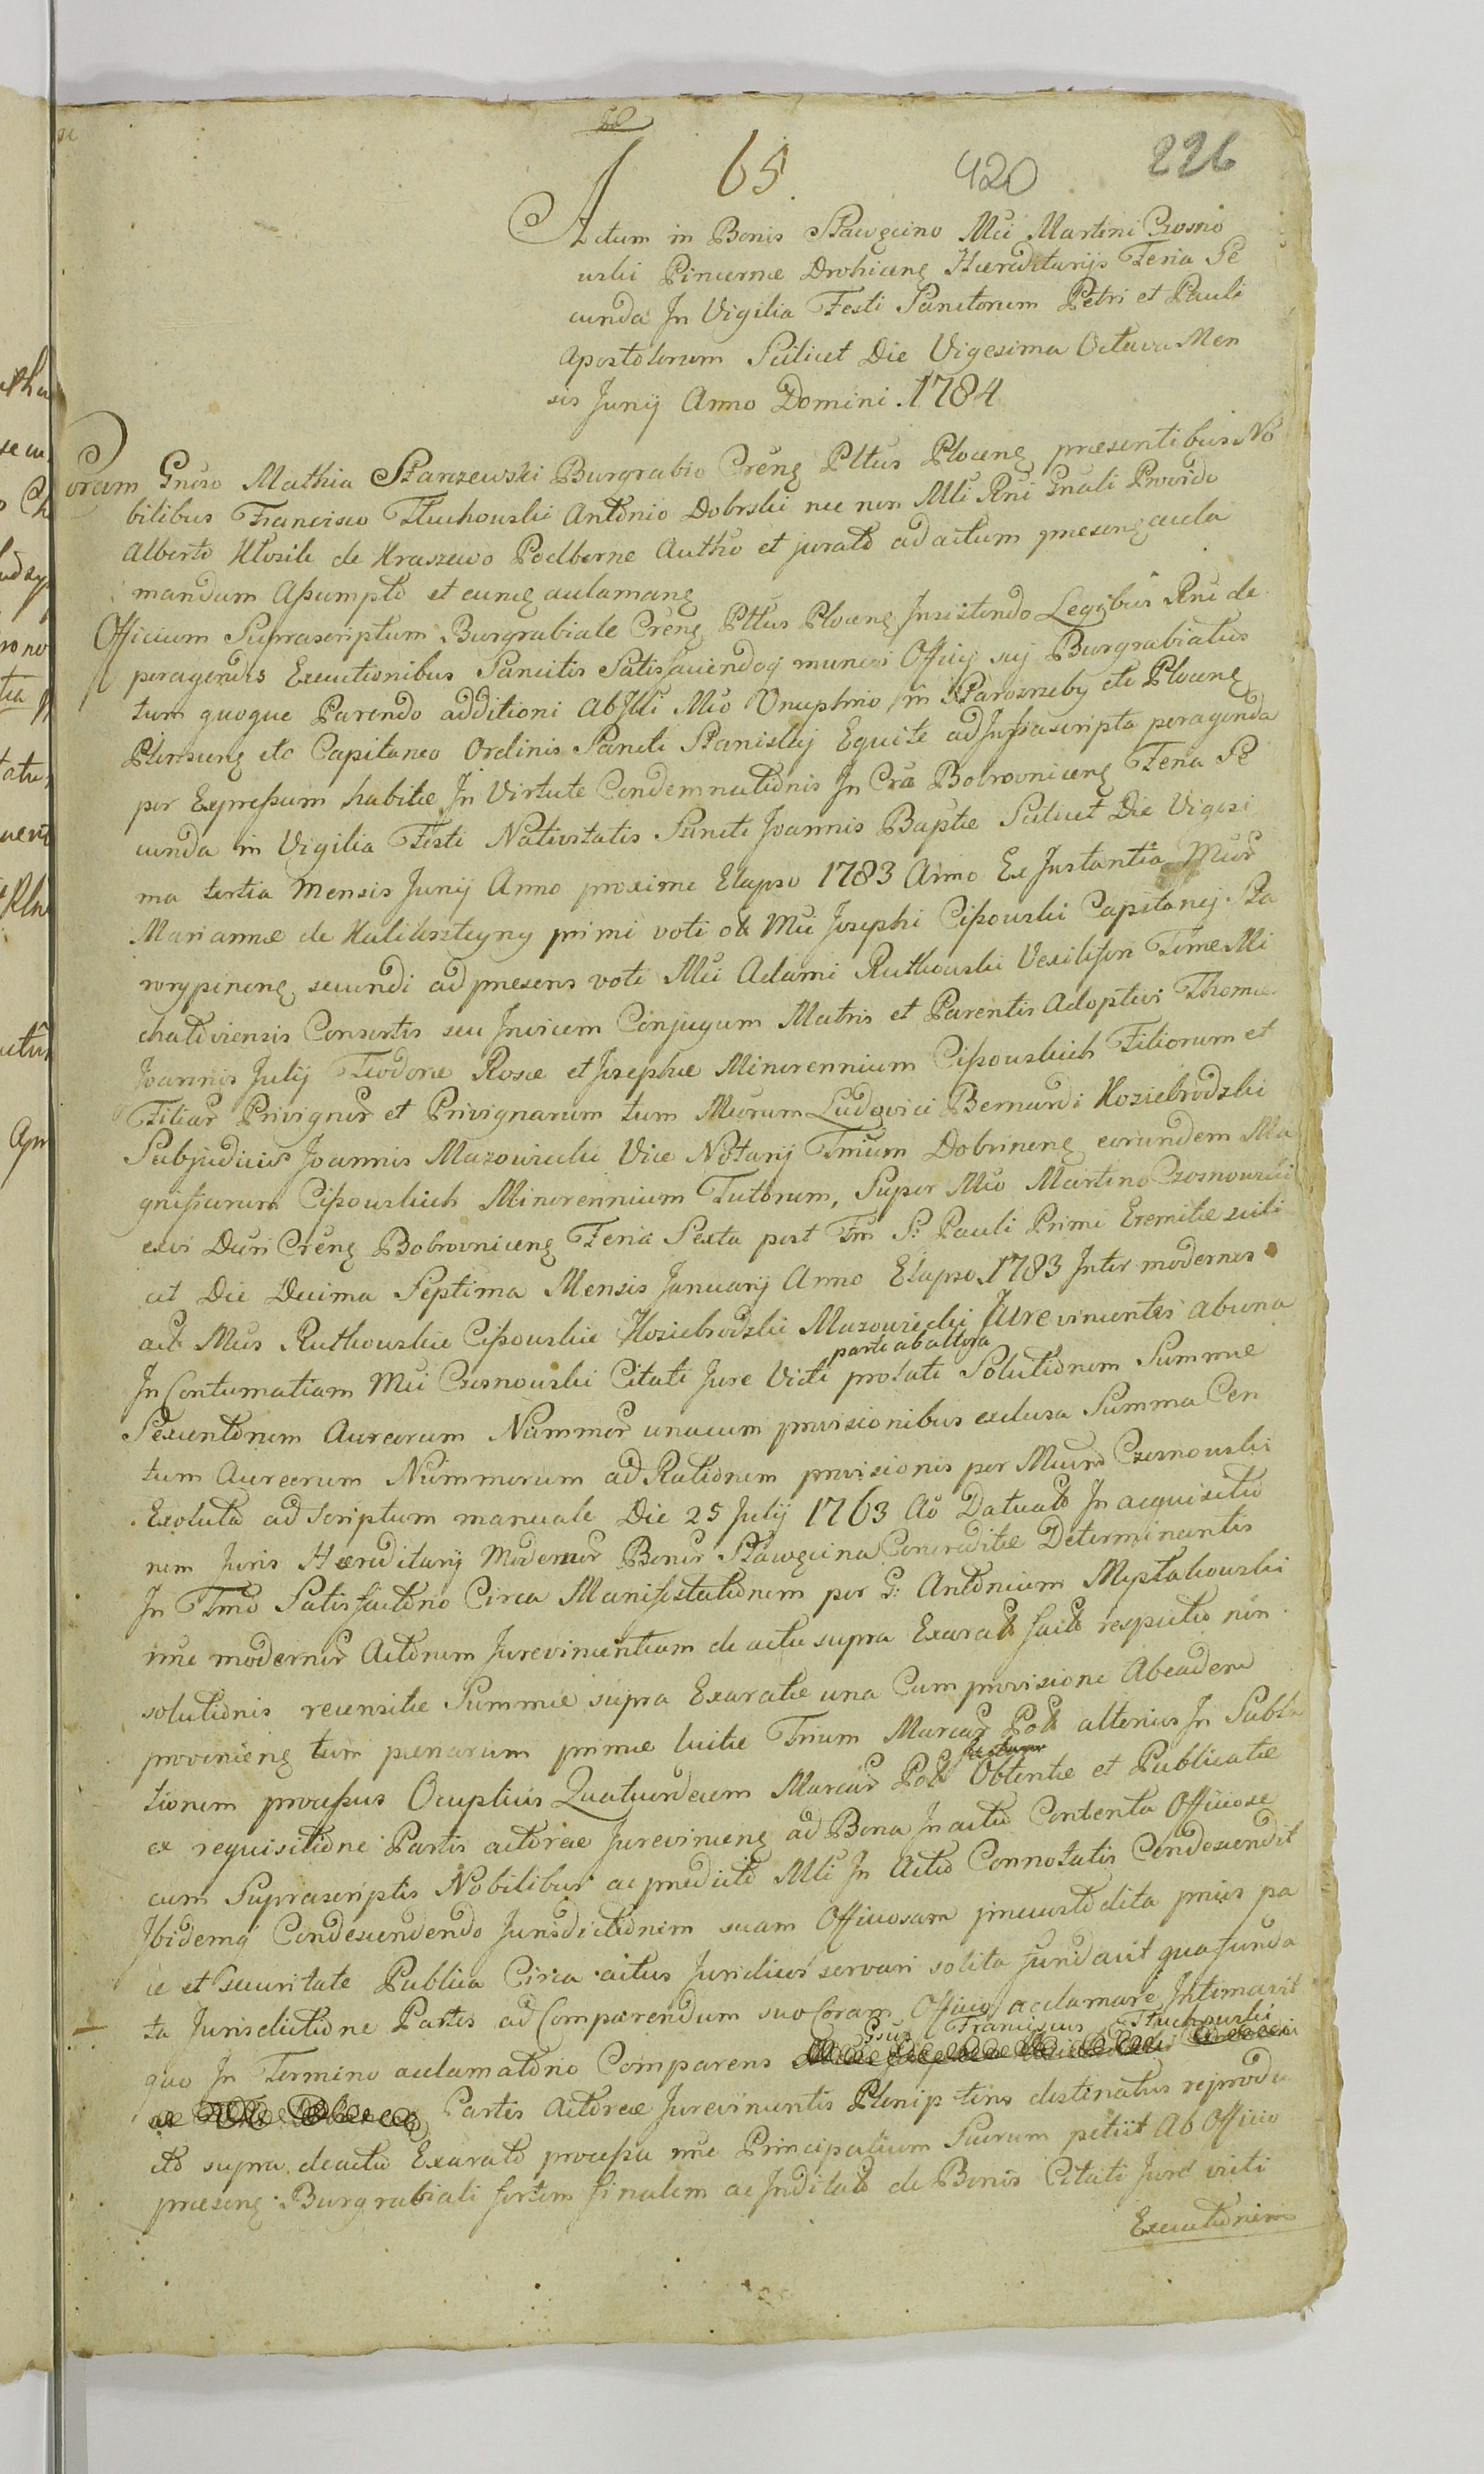 65. 420 226
Actum in Bonis Sławęcino Mci Martini Czosno
wski Pincernæ Drohiceng Hæreditarijs Feria Se
cunda In Vigilia Festi Sanctorum Petri et Pauli
Apostolorum Scilicet Die Vigesima Octava Men
sis Junij Anno Domini 1784
Coram Gnoso Mathia Starzewski Burgrabio Creng Pltus Ploceng præsentibus No
bilibus Francisco Tłuchowski Antonio Dobrski nec non Mli Rni Gnali Provido
Alberto Kłosik de Kraszewo Podborne Autho et jurato ad actum præseng accla
mandum Assumpto et eumq aclamang
Officium Suprascriptum Burgrabiale Creng Pltus Ploceng Insistendo Legibus Rni de
peragendis Executionibus Sancitis Satisfaciendoq muneri Officij sui Burgrabiatus
tum quoque Parendo additioni Ab Illi Mco Onuphrio in etc Ploceng
Płonsceng etc Capitaneo Ordinis Sancti Stanislaj Equite ad Infrascripta peragenda
per Expressum habitæ In Virtute Condemnationis In Cra Bobrovniceng Feria Se
cunda in Vigilia Festi Nativitatis Sancti Joannis Baptæ Scilicet Die Vigesi
ma tertia Mensis Junij Anno proxime Elapso 1783 Anno Ex Instantia Mcor
Mariannæ de primi voti olt Mci Josephi Cissowski Capitanej Sta
rorypineng secundi ad præsens voti Mci Adami Rutkowski Vexiliferi Tttræ Mi
chaloviensis Consortis seu Invicem Conjugum Matris et Parentis Adoptivi Thomæ
Joannis Julij Teodoræ Rosæ et Josephæ Minorennium Cissowskich Filiorum et
Filiar Privignor et Privignarum tum Mcorum Ludovici Bernardi Koziebrodzki
Subjudicis Joannis Mazowiecki Vice Notarij Trium Dobrineng eorundem Ma
gnificarum Cissowskich Minorennium Tutorum, Super Mco Martino Czosnowski
exvi Dcri Creng Bobrovniceng Feria Sexta post Ftm S: Pauli Primi Eremitæ scili
cet Die Decima Septima Mensis Januarij Anno Elapso 1783 Inter modernos
act Mcos Rutkowskie Cissowskie Koziebrodzki Mazowiecki Jure vincentes ab una
parte ab altera
In Contumatiam Mci Czosnowski Citati Jure Victi prolati Solutionem Summæ
Sexcentorum Aureorum Nummor unacum provisionibus exclusa Summa Cen
tum Aureorum Nummorum ad Rationem provisionis per Mcum Czosnowski
Exoluta ad Scriptum manuale Die 25 Julij 1763 Ao Datuato In acquisitio
nem Juris Hæreditarij Modernor Bonor Sławęcina Concreditæ Determinantis
In Tmo Satisfactorio Circa Manifestationem per G: Antonium
nne modernor Actorum Jurevincentium de actu supra Exarat fact respectu non
solutionis recensitæ Summæ supra Exaratæ una Cum provisione Abeadem
provenieng tum pœnarum primæ luitæ Trium Marcar Polt alterius In Subla
tionem processus Octuplicis Quatuordecem Marcar Polt Obtentæ et Publicatæ
ex requisitione Partis actoreæ Jurevinceng ad Bona In actu Contenta Officiose
cum Suprascriptis Nobilibus ac prædicto Mli In Actu Connotatis Condescendit
Ibidemq Condescendendo Jurisdictionem suam Officiosam præcustodita prius pa
ce et Securitate Publica Circa actus Juridicos servari solita fundavit qua funda
ta Jurisdictione Partes ad Comparendum suo Coram Officio acclamare Intimavit
Gsus Franciscus Tłuchowski
quo In Termino acclamatorio Comparens
Partis Actoreæ Jurevincentis Plenip tens destinatus reprodu
cto supra de actu Exarato processu nne Principalium Suorum petiit Ab Officio
præseng Burgrabiali fortem finalem ac Inditato de Bonis Citati Jure victi
Executionem